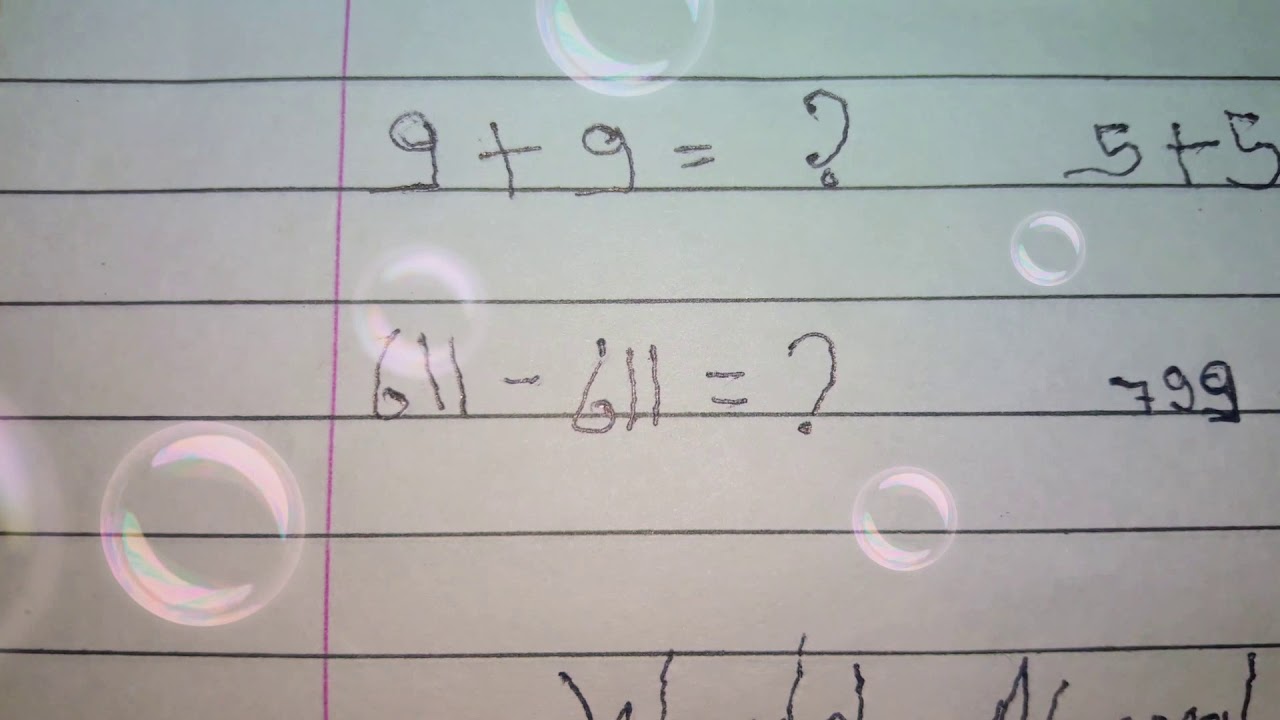 9 + 9 = ? 5+5
611 - 611 = ? 799